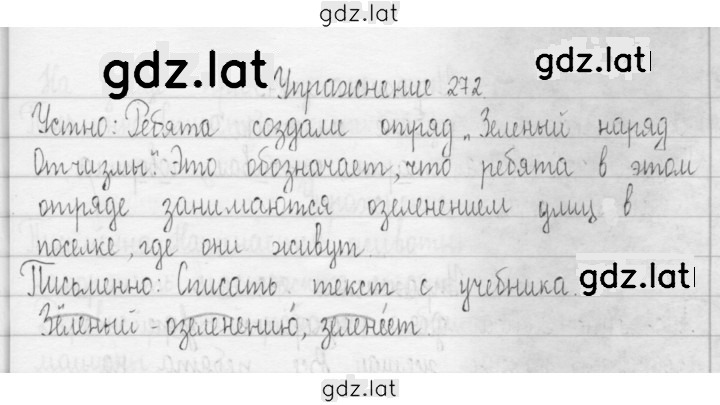 gdz.lat
gdz.lat
gdz.lat
Упражнение 272
Устно: Ребята создали отряд „Зеленый наряд
Отчизмы". Это обозначает, что ребята в этом
отряде занимаются озеленением улиц в
поселке, где они живут.
Письменно: Списать текст с учебника.
gdz.lat
Зелёный - озеленению, зеленеет.
gdz.lat